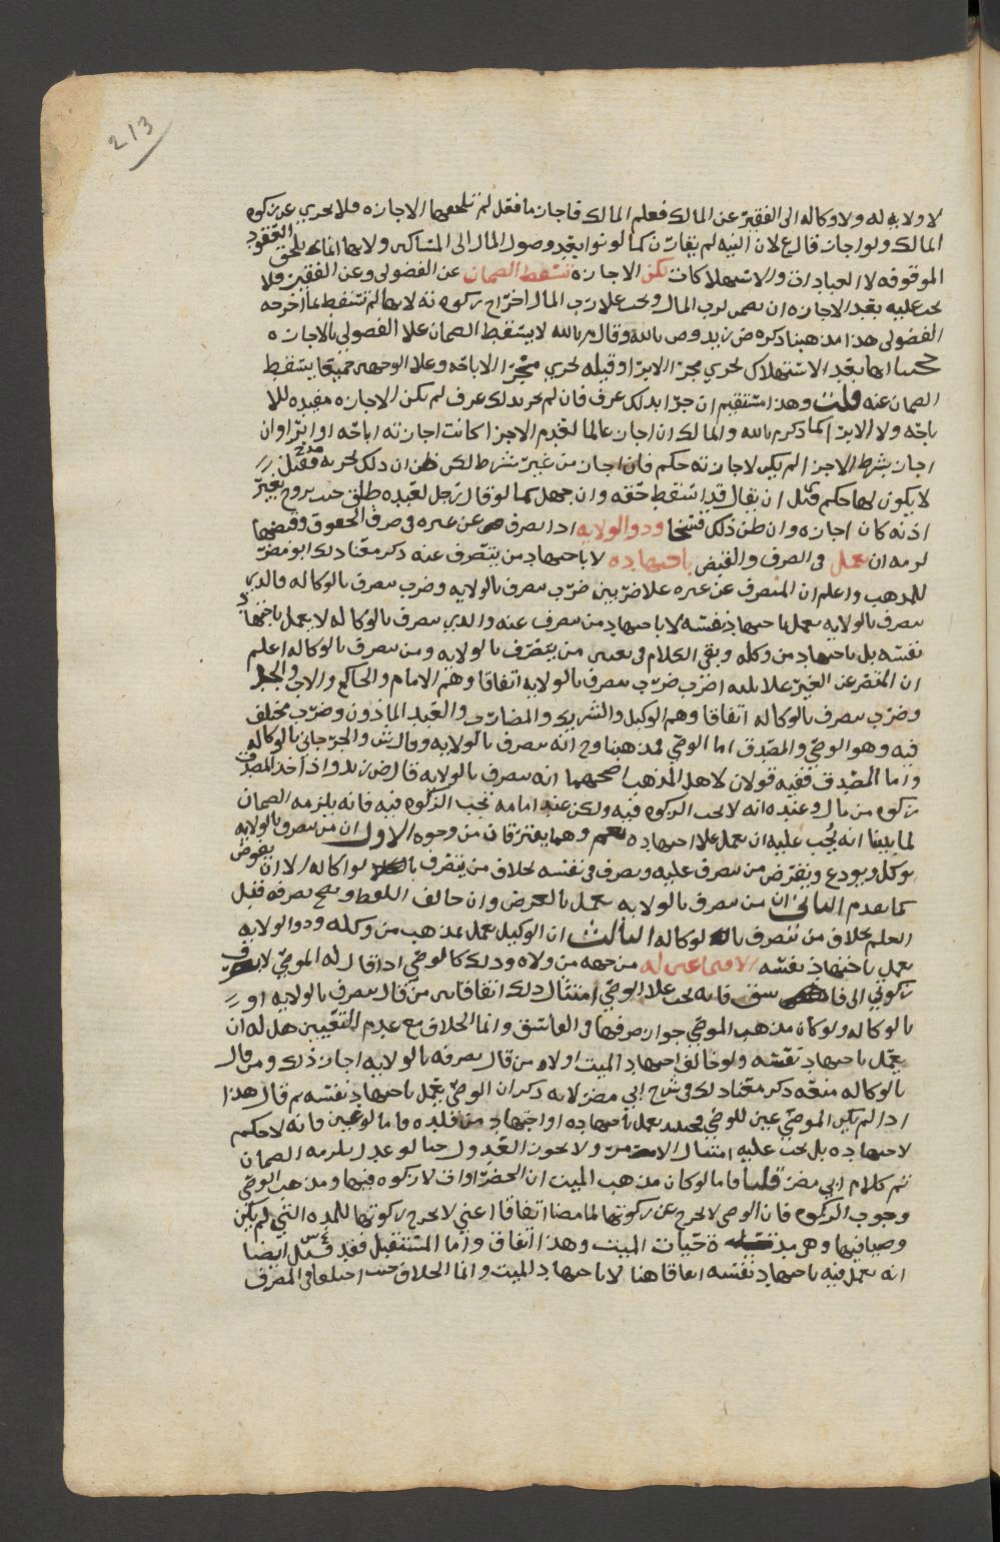 213
لا ولايه له ولا وكاله الى الفقير عن المالك فعلم المالك فاجاز ما فعل لم تلحقها الاجازه فلا يجزي عن زكوه
المالك ولو اجاز قال ع لان النيه لم يقارن كما لو نوا بعد وصول المال الى المساكين ولانها انما يلحق العقود
الموقوفه لا العبادات والاستهلاكات لكن الاجازة تسقط الضمان عن الفضولي وعن الفقير فلا
يجب عليه بعد الاجازه ان يضمن لرب المال ويجب على رب المال اخراج زكوته لانها لم تسقط بما اخرجه
الفضولي هذا مذهبنا ذكره ض زيد وص بالله وقال م بالله لا يسقط الضمان علا الفضولي بالاجازه
لانها بعد الاستهلاك تجري مجرا الابرا وقبله تجري مجرا الاباحه وعلا الوجهين جميعا يسقط
الضمان عنه قلت وهذا مستقيم ان جرا بذلك عرف فان لم يجر بذلك عرف لم تكن الاجازه مفيده للا
باحه ولا الابرا كما ذكر م بالله والمالك ان اجاز عالما لعدم الاجزا كانت اجازته اباحه او ابرا وان
اجاز بشرط الاجزا لم يكن لاجازته حكم فان اجاز من غير شرط لكن ظن ان ذلك يجزيه فقيل
لا يكون لها حكم قيل ان يقال قد اسقط حقه وان جهل كما لو قال رجل لعبده طلق حيث يزوج بغير
اذنه كان اجازه وان ظن ذلك فسخا وذو الولايه اذا تصرف عن غيره في صرف الحقوق وقبضها
لزمه ان يعمل في الصرف والقبض باجتهاده لا باجتهاد من يتصرف عنه ذكر معنا ذلك ابو مضر
للمذهب واعلم ان المتصرف عن غيره علا ضربين ضرب يتصرف بالولايه وضرب يتصرف بالوكاله فالذي
يتصرف بالولايه يعمل باجتهاد نفسه لا باجتهاد من يتصرف عنه والذي يتصرف بالوكاله لا يعمل باجتهاد
نفسه بل باجتهاد من وكله وبقي الكلام في تعيين من يتصرف بالولايه ومن يتصرف بالوكاله اعلم
ان المتصرف عن الغير علا ثلثه اضرب ضرب يتصرف بالولايه اتفاقا وهم الامام والحاكم والاب والجد
وضرب يتصرف بالوكاله اتفاقا وهم الوكيل والشريك والمضارب والعبد الماذون وضرب مختلف
فيه وهو الوصي والمصدق اما الوصي فمذهبنا وح انه يتصرف بالولايه وقال ش والجرجاني بالوكاله
واما المصدق ففيه قولان لاهل المذهب اصحهما انه يتصرف بالولايه قال ض زيد واذا اخذ المصدق
زكوه من مال وعنده انه لا يجب الزكوه فيه ولكن عند امامه يجب الزكوه فيه فانه يلزمه الضمان
لما بينا انه يجب عليه ان يعمل علا اجتهاده نعم وهما يفترقان من وجوه الاول ان من يتصرف بالولايه
يوكل ويودع ويقرض من يتصرف عليه ويصرف في نفسه بخلاف من يتصرف بالوكاله الا ان يفوض
كما تقدم الثاني ان من يتصرف بالولايه يعمل بالغرض وان خالف اللفظ ويصح تصرفه قبل
العلم بخلاف من يتصرف بالوكاله الثالث ان الوكيل يعمل بمذهب من وكله وذو الولايه
يعمل باجتهاد نفسه الا فيما عين له من جهه من ولاه وذلك كالوصي اذا قال له الموصي لا تصرف
زكوتي الى فاسق فانه يجب علا الوصي امتثال ذلك اتفاقا من قال يتصرف بالولايه او
بالوكاله ولو كان مذهب الموصي جواز صرفها في الفاسق وانما الخلاف مع عدم التعيين هل له ان
يعمل باجتهاد نفسه ولو خالف اجتهاد الميت او لا من قال تصرفه بالولايه اجاز ذلك ومن قال
بالوكاله منعه ذكر معنا ذلك في شرح ابي مضر لانه ذكر ان الوصي يعمل باجتهاد نفسه ثم قال هذا
اذا لم يكن الموصي عين للوصي فحينئذ يعمل باجتهاده او اجتهاد من قلده فاما لو عين فانه لا حكم
لاجتهاده بل يجب عليه امتثال الامر ولا يجوز العدول حتا لو عدل يلزمه الضمان
تم كلام ابي مضر قلنا فاما لو كان مذهب الميت ان الخضراوات لا زكوه فيها ومذهب الوصي
وجوب الزكوه فان الوصي لا يخرج عن زكوتها لما مضا اتفاقا اعني لا يخرج زكوتها للمده التي لم يكن
وصيا فيها وهي مدة حيات الميت وهذا اتفاق واما المستقبل فقد قيل س ايضا
انه يعمل فيه باجتهاد نفسه اتفاقا هنا لا باجتهاد الميت وانما الخلاف حيث اختلفا في المصرف